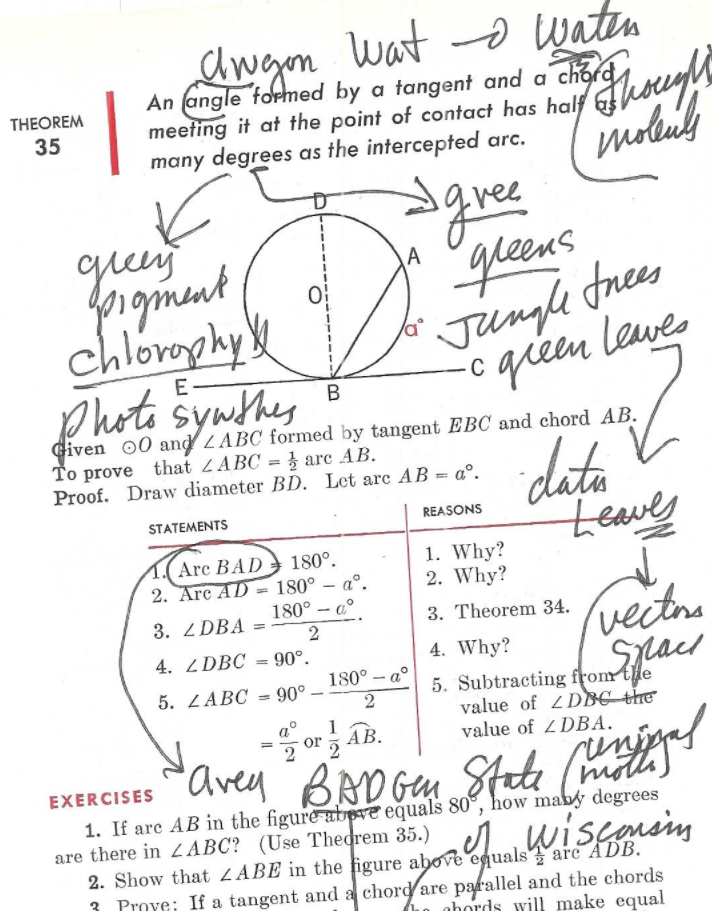 angon Wat → Waters
THEOREM
35
An angle formed by a tangent and a chord
meeting it at the point of contact has half as
many degrees as the intercepted arc.
thought
green
pigment
chlorophyll
Photo synthes
gree
greens
Jungle trees
green leaves
D
A
O
a°
E
B
C
Given ⊙O and ∠ABC formed by tangent EBC and chord AB.
To prove that ∠ABC = ½ arc AB.
Proof. Draw diameter BD. Let arc AB = a°.
data
Leaves
vectors
space
STATEMENTS
REASONS
1. Arc BAD = 180°.
1. Why?
2. Arc AD = 180° − a°.
2. Why?
3. ∠DBA = (180° − a°)/2.
3. Theorem 34.
4. ∠DBC = 90°.
4. Why?
5. ∠ABC = 90° − (180° − a°)/2
5. Subtracting from the
value of ∠DBC the
value of ∠DBA.
= a°/2 or ½ AB.
area BADGen State
of Wisconsin
EXERCISES
1. If arc AB in the figure above equals 80°, how many degrees
are there in ∠ABC? (Use Theorem 35.)
2. Show that ∠ABE in the figure above equals ½ arc ADB.
3. Prove: If a tangent and a chord are parallel and the chords
the chords will make equal